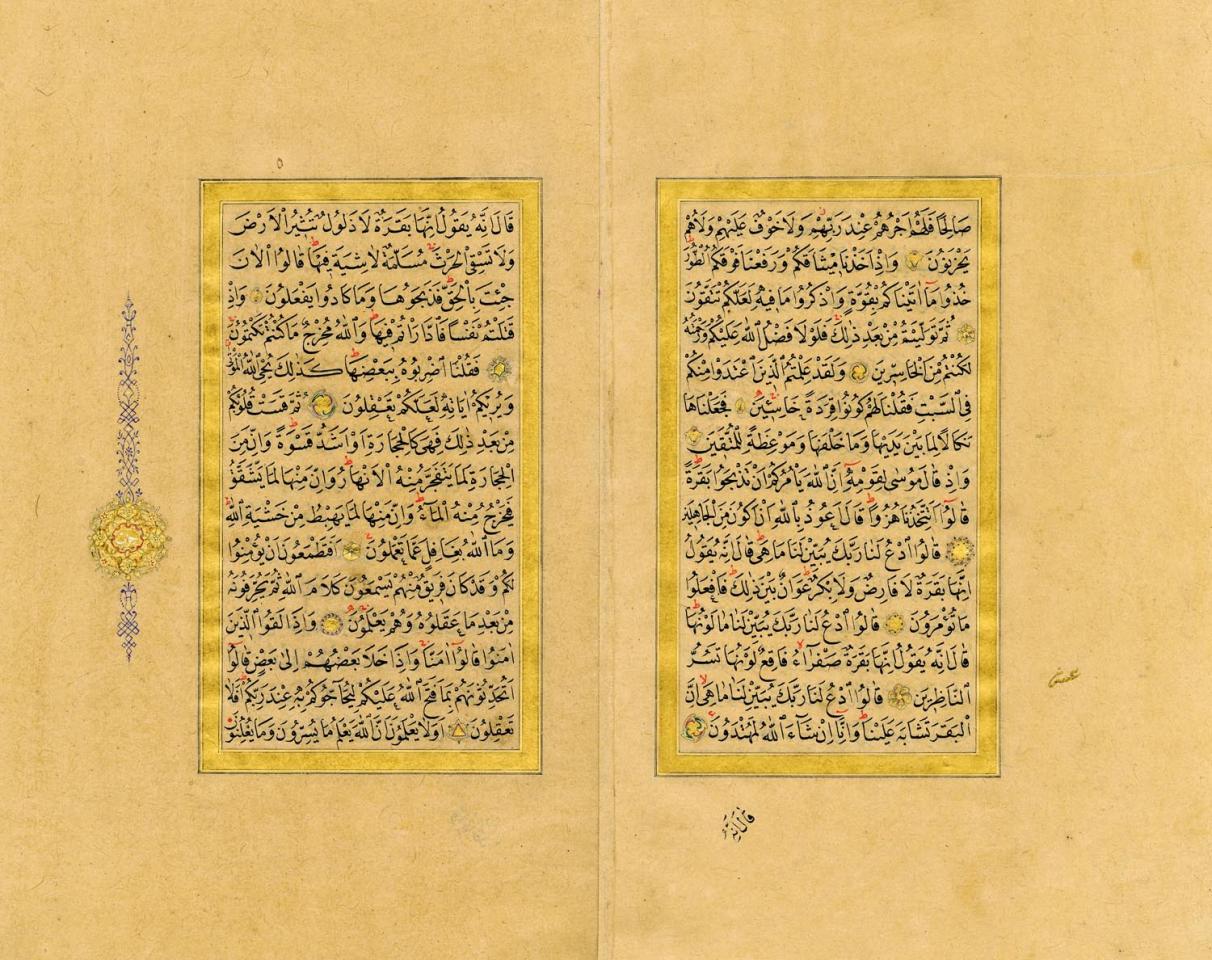 صَالِحًا فَلَهُمْ اَجْرُهُمْ عِنْدَ رَبِّهِمْ وَلَا خَوْفٌ عَلَيْهِمْ وَلَا هُمْ
يَحْزَنُونَ وَاِذْ اَخَذْنَا مِيثَاقَكُمْ وَرَفَعْنَا فَوْقَكُمُ الطُّورَ
خُذُوا مَٓا اٰتَيْنَاكُمْ بِقُوَّةٍ وَاذْكُرُوا مَا فِيهِ لَعَلَّكُمْ تَتَّقُونَ
ثُمَّ تَوَلَّيْتُمْ مِنْ بَعْدِ ذٰلِكَ فَلَوْلَا فَضْلُ اللّٰهِ عَلَيْكُمْ وَرَحْمَتُهُ
لَكُنْتُمْ مِنَ الْخَاسِرِينَ وَلَقَدْ عَلِمْتُمُ الَّذِينَ اعْتَدَوْا مِنْكُمْ
فِي السَّبْتِ فَقُلْنَا لَهُمْ كُونُوا قِرَدَةً خَاسِئِينَ فَجَعَلْنَاهَا
نَكَالًا لِمَا بَيْنَ يَدَيْهَا وَمَا خَلْفَهَا وَمَوْعِظَةً لِلْمُتَّقِينَ
وَاِذْ قَالَ مُوسٰى لِقَوْمِهِٓ اِنَّ اللّٰهَ يَأْمُرُكُمْ اَنْ تَذْبَحُوا بَقَرَةً
قَالُٓوا اَتَتَّخِذُنَا هُزُوًا قَالَ اَعُوذُ بِاللّٰهِ اَنْ اَكُونَ مِنَ الْجَاهِلِينَ
قَالُوا ادْعُ لَنَا رَبَّكَ يُبَيِّنْ لَنَا مَا هِيَ قَالَ اِنَّهُ يَقُولُ
اِنَّهَا بَقَرَةٌ لَا فَارِضٌ وَلَا بِكْرٌ عَوَانٌ بَيْنَ ذٰلِكَ فَافْعَلُوا
مَا تُؤْمَرُونَ قَالُوا ادْعُ لَنَا رَبَّكَ يُبَيِّنْ لَنَا مَا لَوْنُهَا
قَالَ اِنَّهُ يَقُولُ اِنَّهَا بَقَرَةٌ صَفْرَٓاءُ فَاقِعٌ لَوْنُهَا تَسُرُّ
النَّاظِرِينَ قَالُوا ادْعُ لَنَا رَبَّكَ يُبَيِّنْ لَنَا مَا هِيَ اِنَّ
الْبَقَرَ تَشَابَهَ عَلَيْنَا وَاِنَّٓا اِنْ شَٓاءَ اللّٰهُ لَمُهْتَدُونَ
قَالَ اِنَّهُ
قَالَ اِنَّهُ يَقُولُ اِنَّهَا بَقَرَةٌ لَا ذَلُولٌ تُثِيرُ الْاَرْضَ
وَلَا تَسْقِي الْحَرْثَ مُسَلَّمَةٌ لَا شِيَةَ فِيهَا قَالُوا الْاٰنَ
جِئْتَ بِالْحَقِّ فَذَبَحُوهَا وَمَا كَادُوا يَفْعَلُونَ وَاِذْ
قَتَلْتُمْ نَفْسًا فَادَّارَأْتُمْ فِيهَا وَاللّٰهُ مُخْرِجٌ مَا كُنْتُمْ تَكْتُمُونَ
فَقُلْنَا اضْرِبُوهُ بِبَعْضِهَا كَذٰلِكَ يُحْيِي اللّٰهُ الْمَوْتٰى
وَيُرِيكُمْ اٰيَاتِهِ لَعَلَّكُمْ تَعْقِلُونَ ثُمَّ قَسَتْ قُلُوبُكُمْ
مِنْ بَعْدِ ذٰلِكَ فَهِيَ كَالْحِجَارَةِ اَوْ اَشَدُّ قَسْوَةً وَاِنَّ مِنَ
الْحِجَارَةِ لَمَا يَتَفَجَّرُ مِنْهُ الْاَنْهَارُ وَاِنَّ مِنْهَا لَمَا يَشَّقَّقُ
فَيَخْرُجُ مِنْهُ الْمَٓاءُ وَاِنَّ مِنْهَا لَمَا يَهْبِطُ مِنْ خَشْيَةِ اللّٰهِ
وَمَا اللّٰهُ بِغَافِلٍ عَمَّا تَعْمَلُونَ اَفَتَطْمَعُونَ اَنْ يُؤْمِنُوا
لَكُمْ وَقَدْ كَانَ فَرِيقٌ مِنْهُمْ يَسْمَعُونَ كَلَامَ اللّٰهِ ثُمَّ يُحَرِّفُونَهُ
مِنْ بَعْدِ مَا عَقَلُوهُ وَهُمْ يَعْلَمُونَ وَاِذَا لَقُوا الَّذِينَ
اٰمَنُوا قَالُٓوا اٰمَنَّا وَاِذَا خَلَا بَعْضُهُمْ اِلٰى بَعْضٍ قَالُٓوا
اَتُحَدِّثُونَهُمْ بِمَا فَتَحَ اللّٰهُ عَلَيْكُمْ لِيُحَٓاجُّوكُمْ بِهِ عِنْدَ رَبِّكُمْ اَفَلَا
تَعْقِلُونَ اَوَلَا يَعْلَمُونَ اَنَّ اللّٰهَ يَعْلَمُ مَا يُسِرُّونَ وَمَا يُعْلِنُونَ